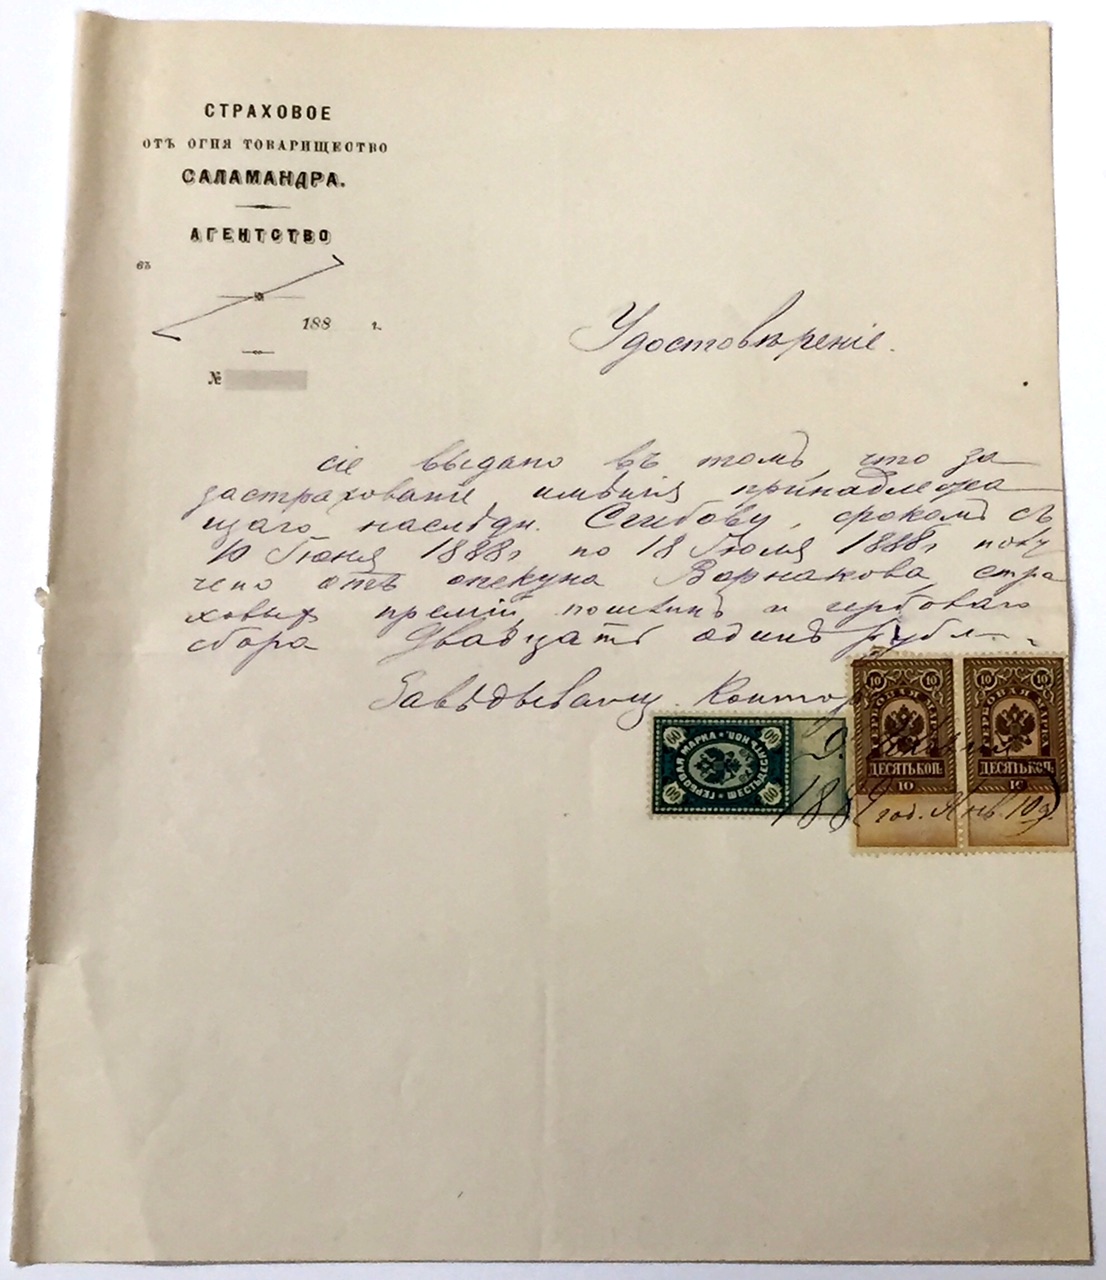 СТРАХОВОЕ
ОТЪ ОГНЯ ТОВАРИЩЕСТВО
САЛАМАНДРА.
АГЕНТСТВО
въ
188 г.
№
Удостовѣреніе.
сіе выдано въ томъ, что за
застрахованіе имѣнія принадлежа
щаго наслѣдн. срокомъ съ
10 Іюня 1888 г по 18 Іюля 1888 г полу
чено отъ опекуна Варнакова стра
ховыхъ премій, пошлинъ и гербоваго
сбора двадцать одинъ рубл
Завѣдывающ. Контор
ГЕРБОВАЯ МАРКА
ШЕСТЬДЕСЯТЪ КОП.
60 60 60 60
10 10
ГЕРБОВАЯ МАРКА
ДЕСЯТЬ КОП.
10
10 10
ГЕРБОВАЯ МАРКА
ДЕСЯТЬ КОП.
10
188 год. Янв. 10 д.